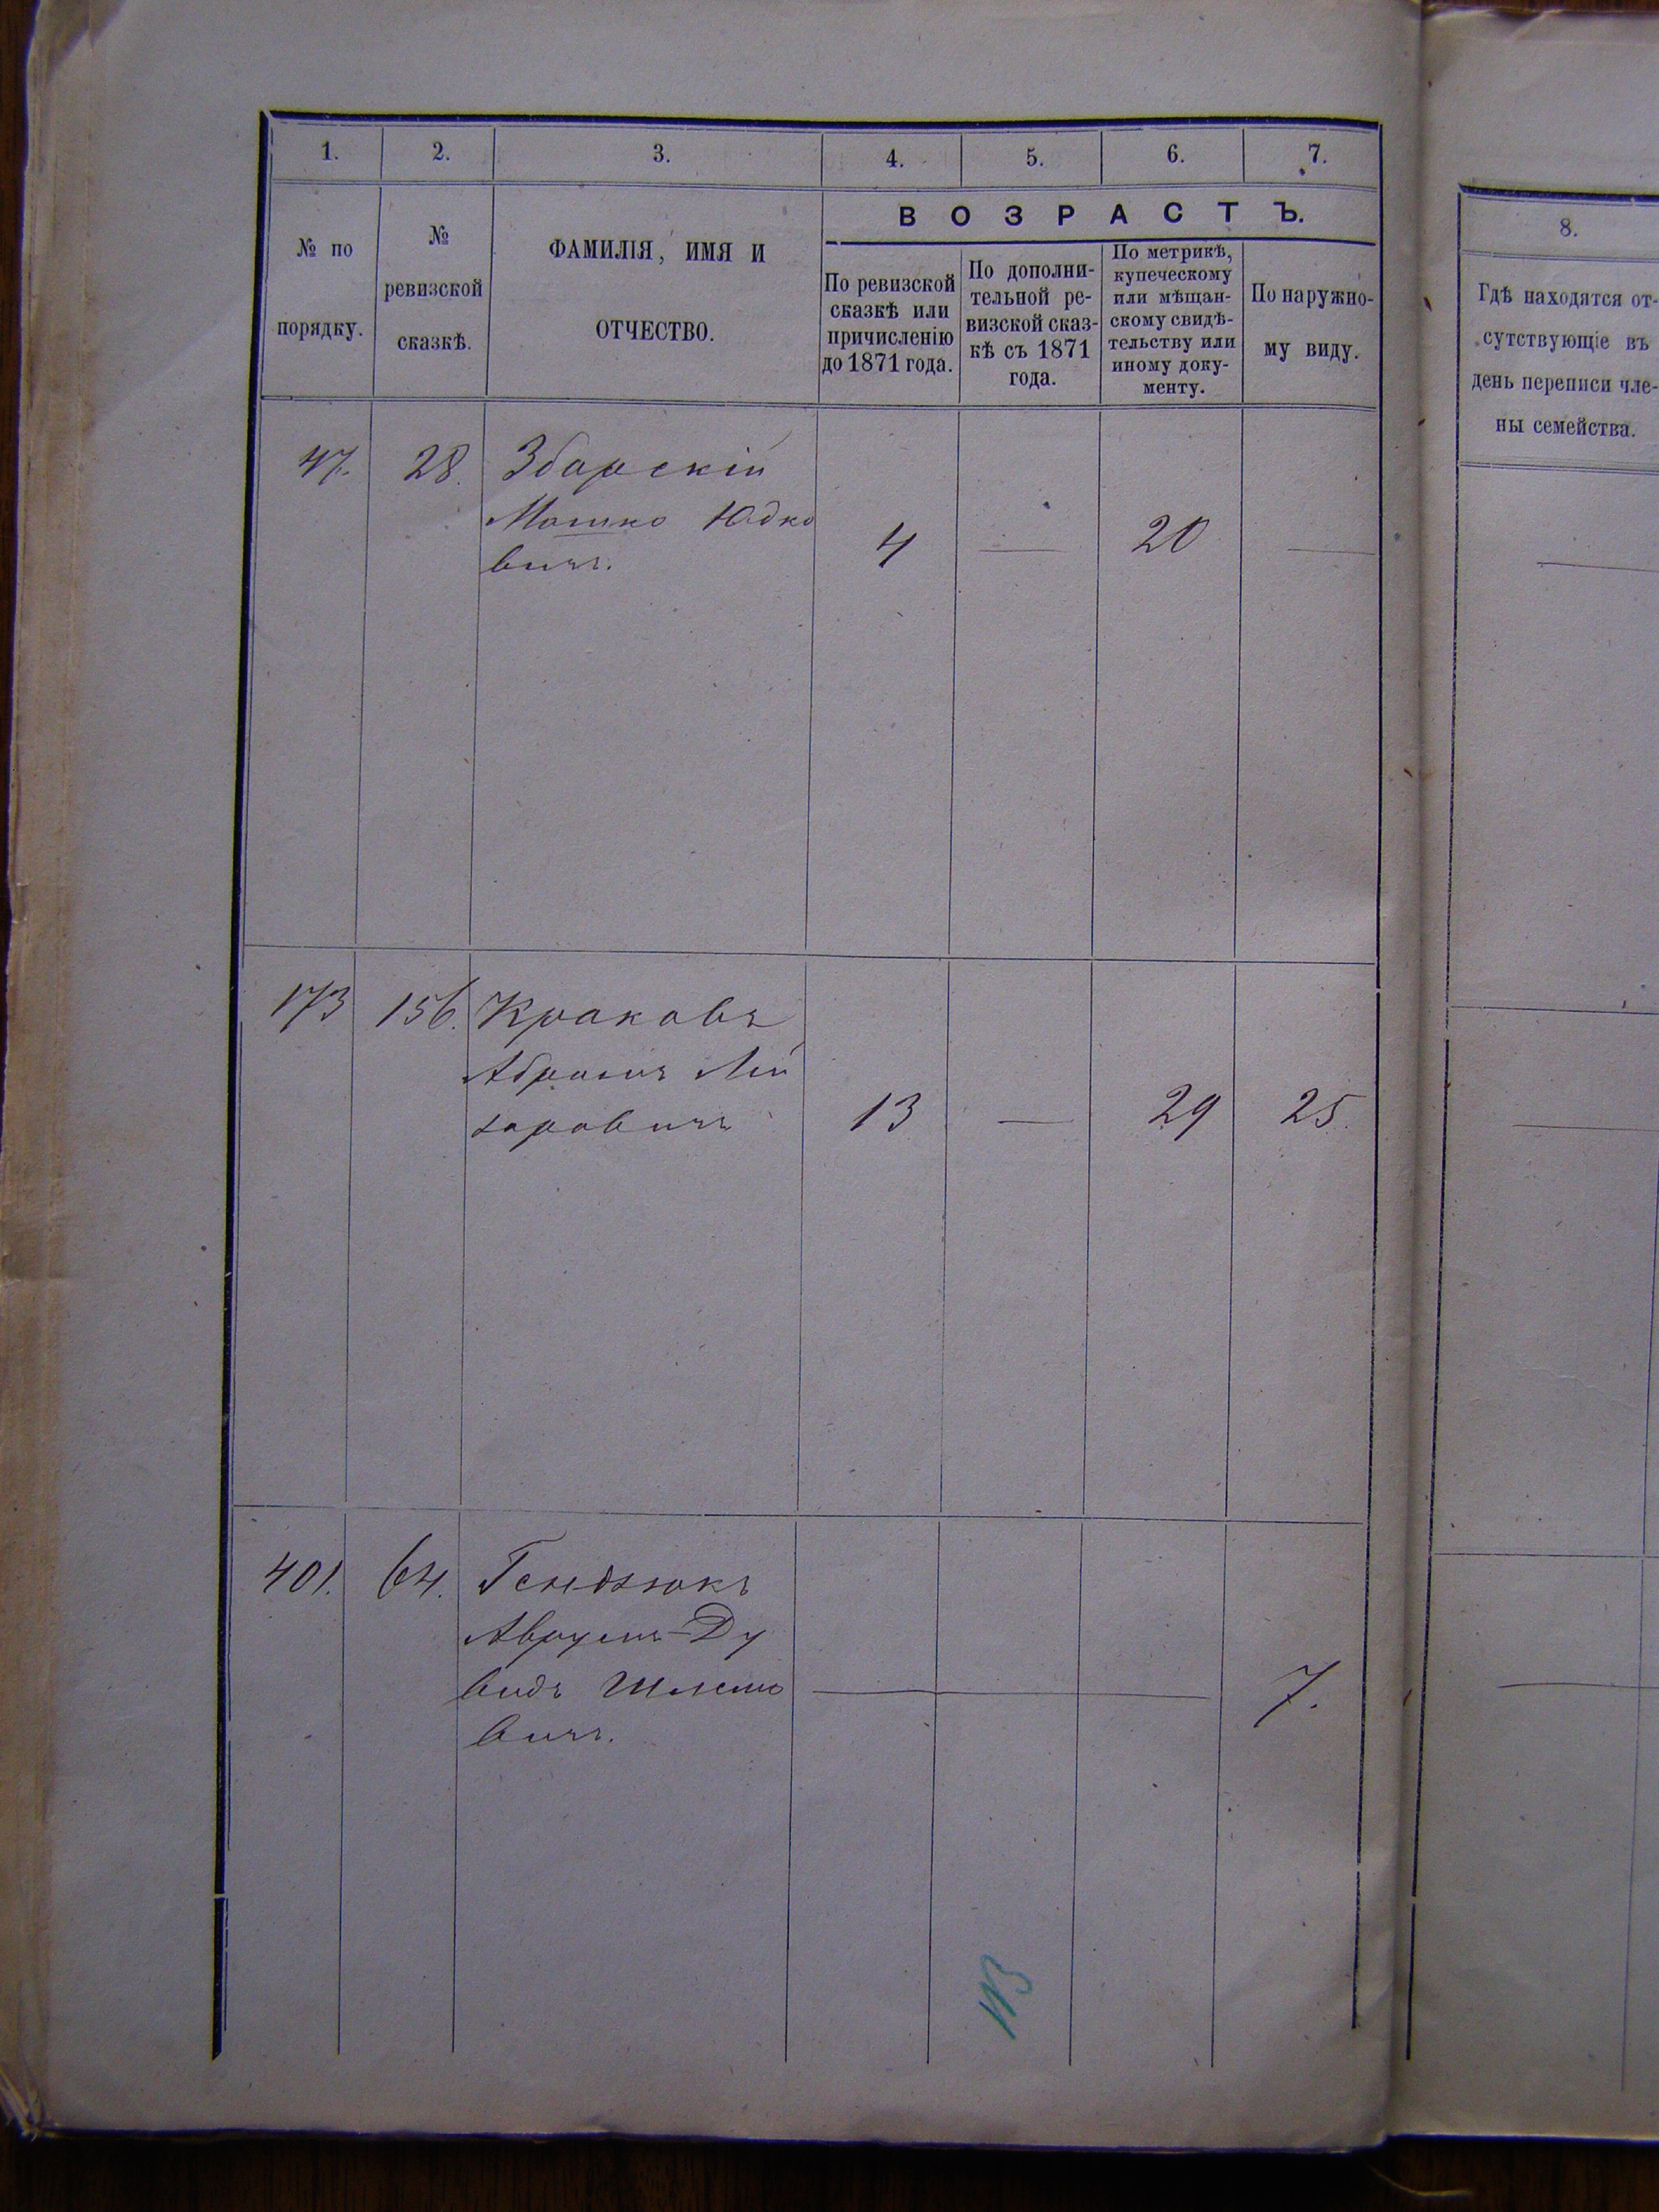 1. 2. 3. 4. 5. 6. 7.
№ по порядку.
№ ревизской сказкѣ.
ФАМИЛІЯ, ИМЯ И
ОТЧЕСТВО.
ВОЗРАСТЪ.
По ревизской
сказкѣ или
причисленію
до 1871 года.
По дополни-
тельной ре-
визской сказ-
кѣ съ 1871
года.
По метрикѣ,
купеческому
или мѣщан-
скому свидѣ-
тельству или
иному доку-
менту.
По наружно-
му виду.
8.
Гдѣ находятся от-
сутствующіе въ
день переписи чле-
ны семейства.
47. 28. Збарскій
Мошко Юдко
вичъ.
4 — 20 —
173 156. Краковъ
Абрамъ Лей
заровичъ
13 — 29 25.
401. 64. Гендзюкъ
Аврумъ-Ду
видъ Шлемо
вичъ.
7.